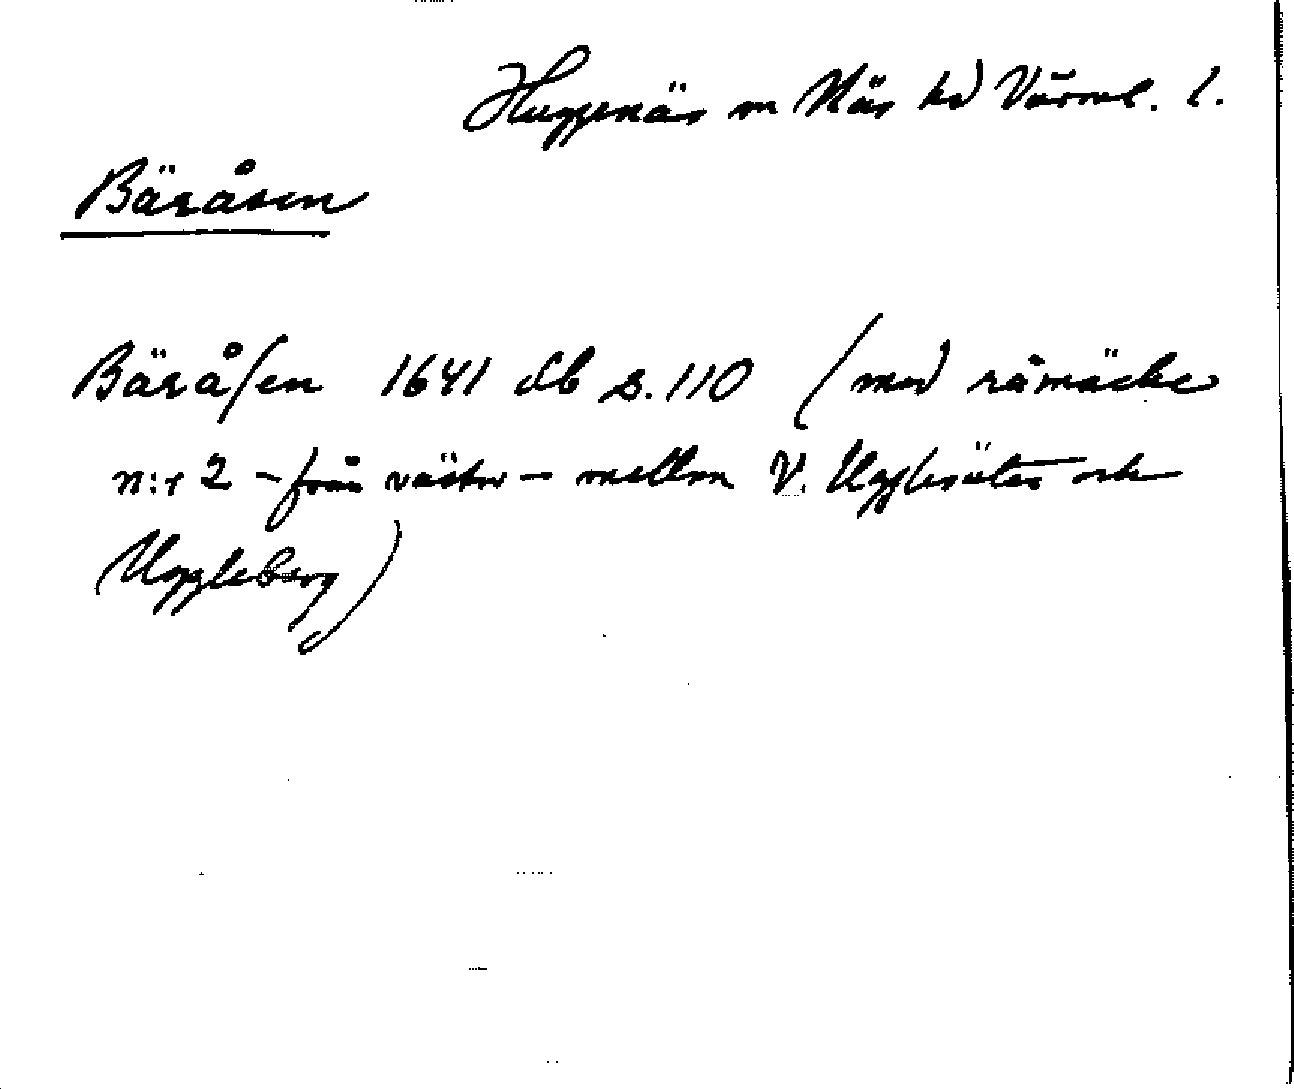 Huggenäs sn Näs hd Värml. l.
Bäråsen
Bäråſen 1641 db s. 110 (med råmärke
n:r 2 – från väster – mellan V. Ugglesäter och
Uggleberg)